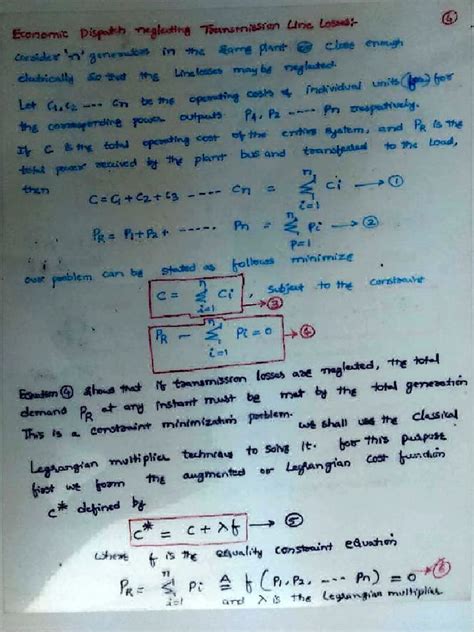 Economic Dispatch neglecting Transmission Line Losses:-
Consider 'n' generators in the same plant or close enough
electrically so that the Linelosses may be neglected
Let C1, C2 ---- Cn be the operating costs of individual units for
the corresponding power outputs P1, P2 ---- Pn respectively.
If C is the total operating cost of the entire system, and PR is the
total power received by the plant bus and transferred to the Load,
then
C = C1 + C2 + C3 ----- Cn = n∑i=1 Ci → ①
PR = P1 + P2 + ----- Pn = n∑P=1 Pi → ②
our problem can be stated as follows minimize
C = n∑i=1 Ci, subject to the constraint → ③
PR - n∑i=1 Pi = 0 → ④
Equation ④ shows that if transmission losses are neglected, the total
demand PR at any instant must be met by the total generation
This is a constraint minimization problem.
we shall use the classical
Legrangian multiplier technique to solve it. for this purpose
first we form the augmented or Legrangian cost function
C* defined by
C* = C + λf → ⑤
where f is the equality constraint equation
PR = n∑i=1 Pi ≜ f (P1, P2, --- Pn) = 0 → ⑥
and λ is the Legrangian multiplier